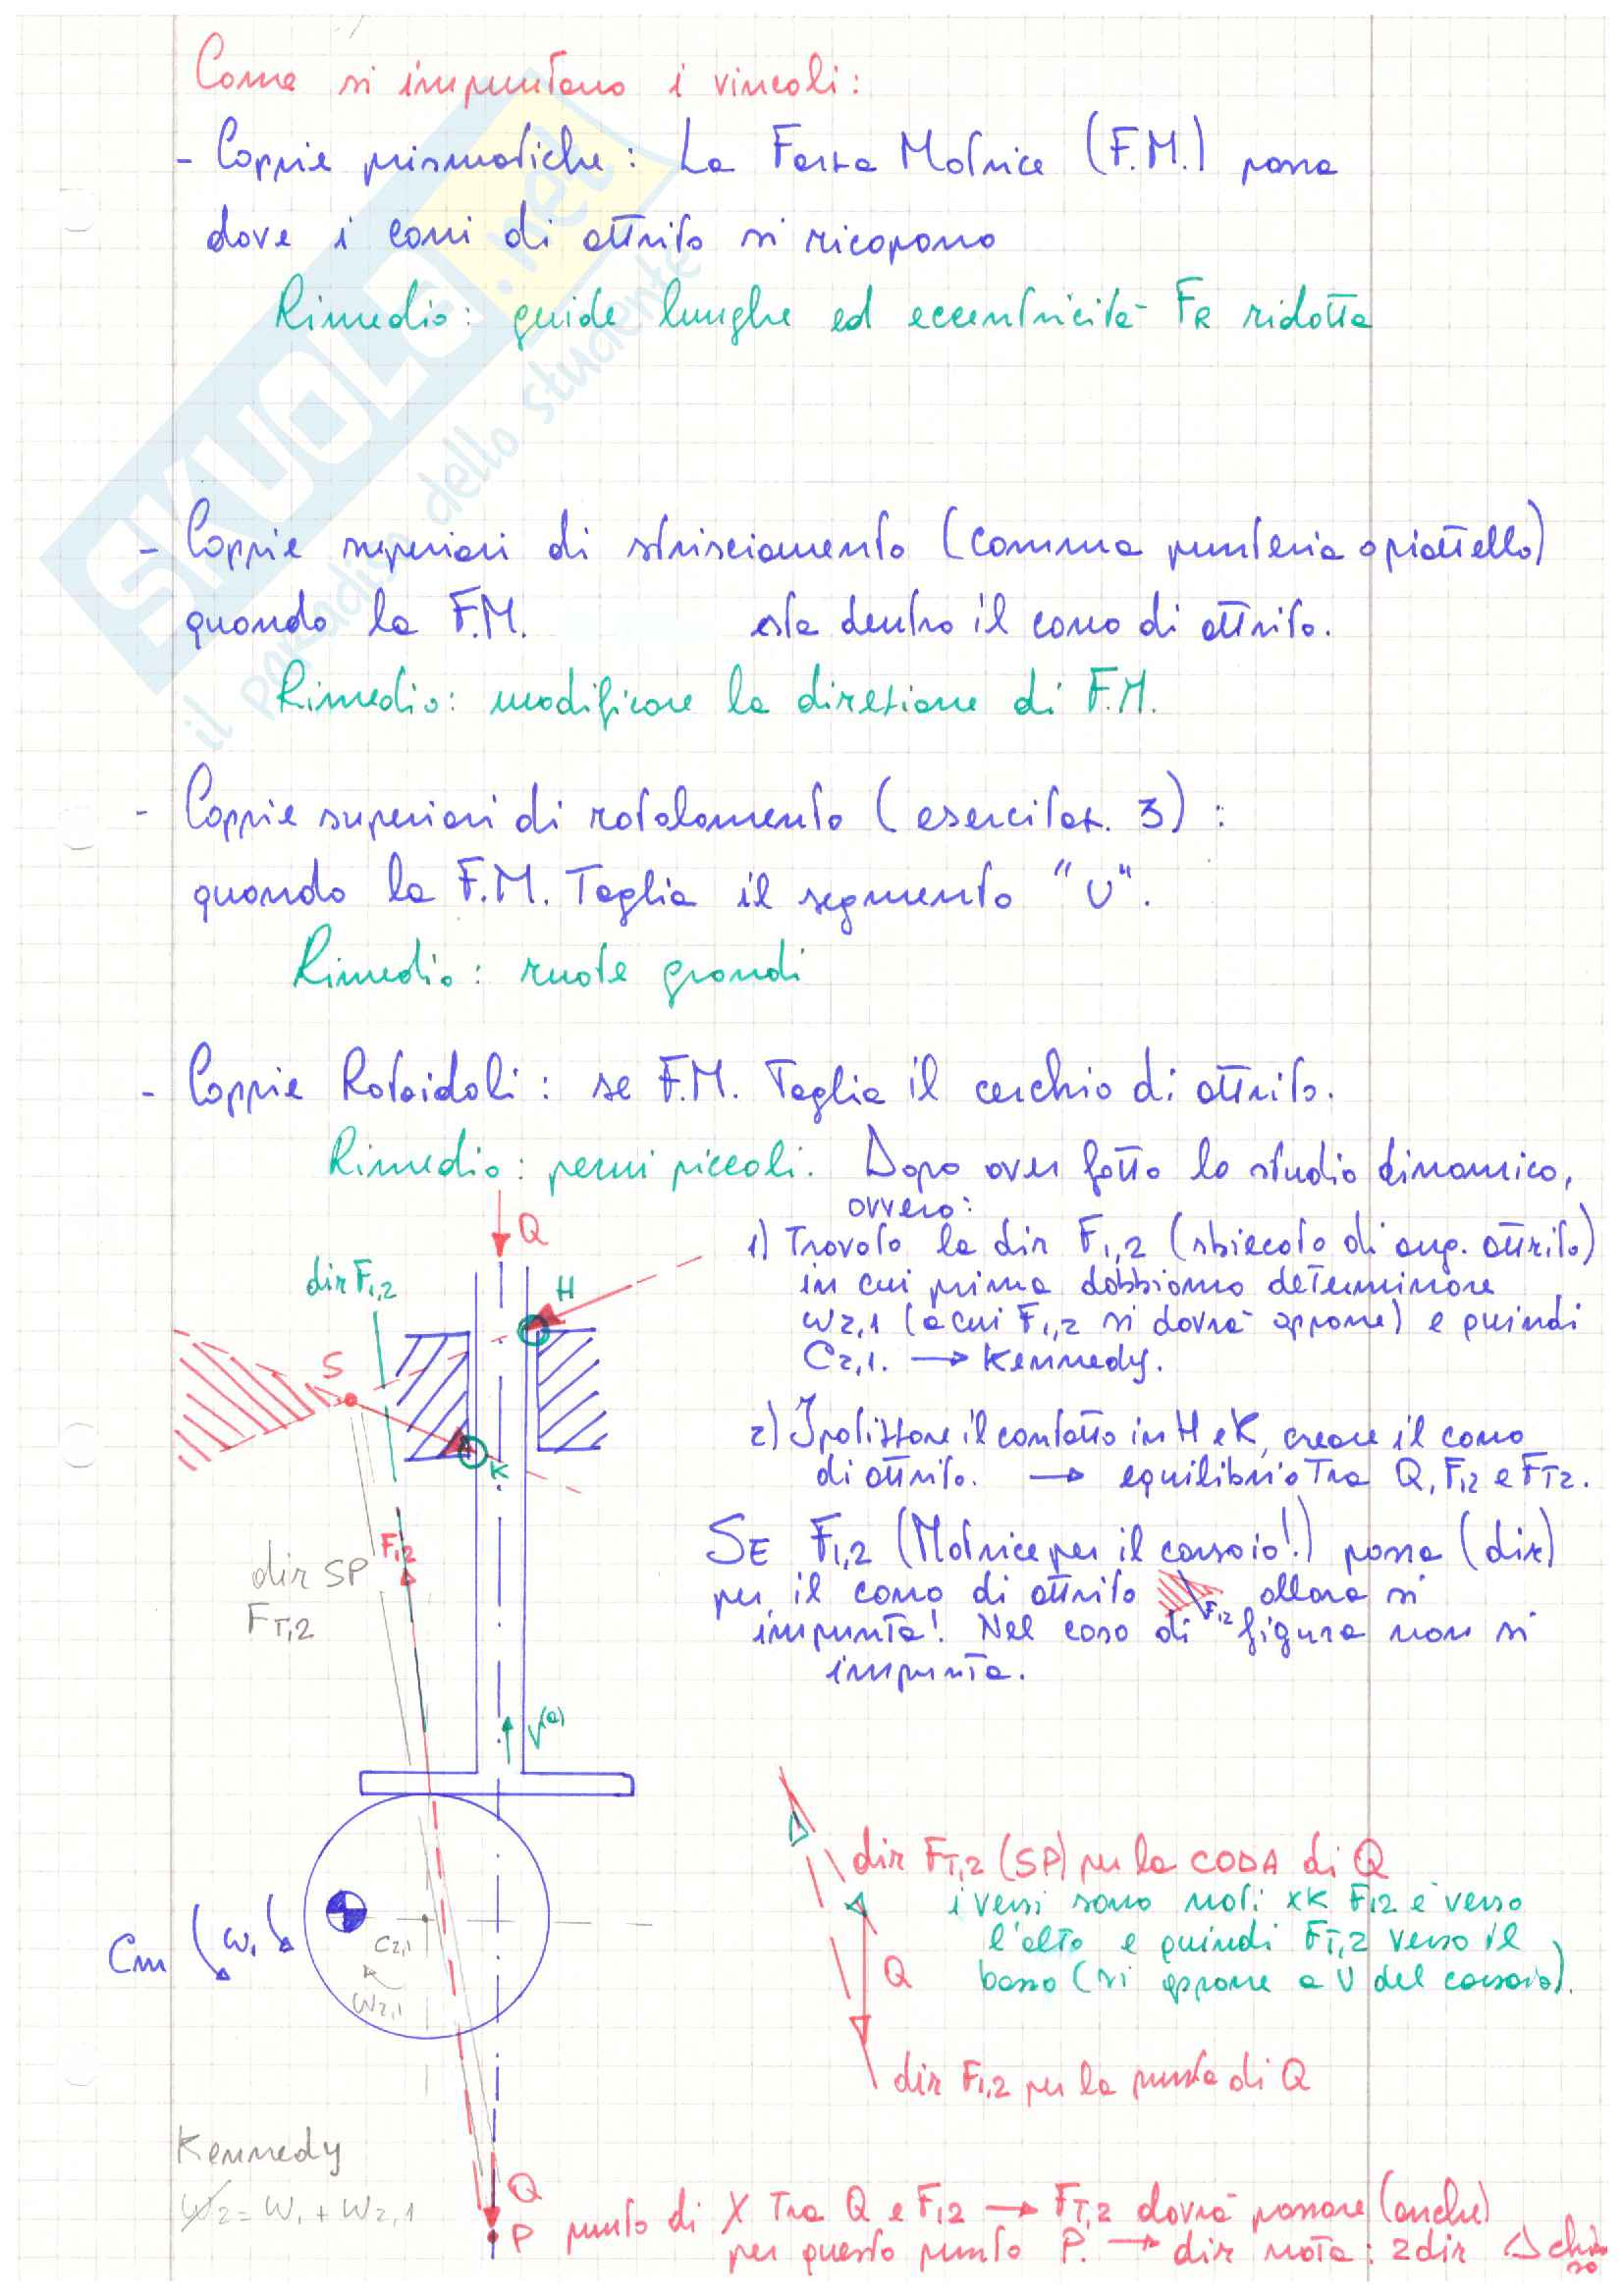 Come si impuntano i vincoli:
- Coppie prismatiche: La Forza Motrice (F.M.) passa
dove i coni di attrito si ricoprono
Rimedio: guide lunghe ed eccentricità FR ridotta
- Coppie superiori di strisciamento (camma punteria a piattello)
quando la F.M. sta dentro il cono di attrito.
Rimedio: modificare la direzione di F.M.
- Coppie superiori di rotolamento (esercitaz. 3):
quando la F.M. Taglia il segmento "U".
Rimedio: ruote grandi
- Coppie Rotoidali: se F.M. Taglia il cerchio di attrito.
Rimedio: perni piccoli. Dopo aver fatto lo studio dinamico,
ovvero:
1) Trovato la dir F1,2 (sbiecato di ang. attrito)
in cui prima dobbiamo determinare
ω2,1 (a cui F1,2 si dovrà opporre) e quindi
C2,1. → Kennedy.
2) Ipotizzare il contatto in H e K, creare il cono
di attrito. → equilibrio Tra Q, F12 e FT2.
SE F1,2 (Motrice per il corsoio!) passa (dir)
per il cono di attrito F1,2 allora si
impunta! Nel caso di figura non si
impunta.
Q
H
dir F1,2
S
K
F1,2
dir SP
FT,2
V(a)
dir FT,2 (SP) per la CODA di Q
i versi sono noti xk F12 è verso
l'alto e quindi FT,2 verso il
basso (si oppone a V del corsoio).
Q
dir F1,2 per la punta di Q
Cm
ω1
C2,1
ω2,1
Kennedy
ω2 = ω1 + ω2,1
Q
P punto di X Tra Q e F12 → FT,2 dovrà passare (anche)
per questo punto P. → dir nota: 2 dir Δ chiuso
SKUOLA.net
il paradiso dello studente